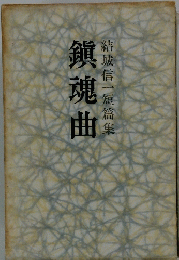 結城信一短篇集
鎮魂曲